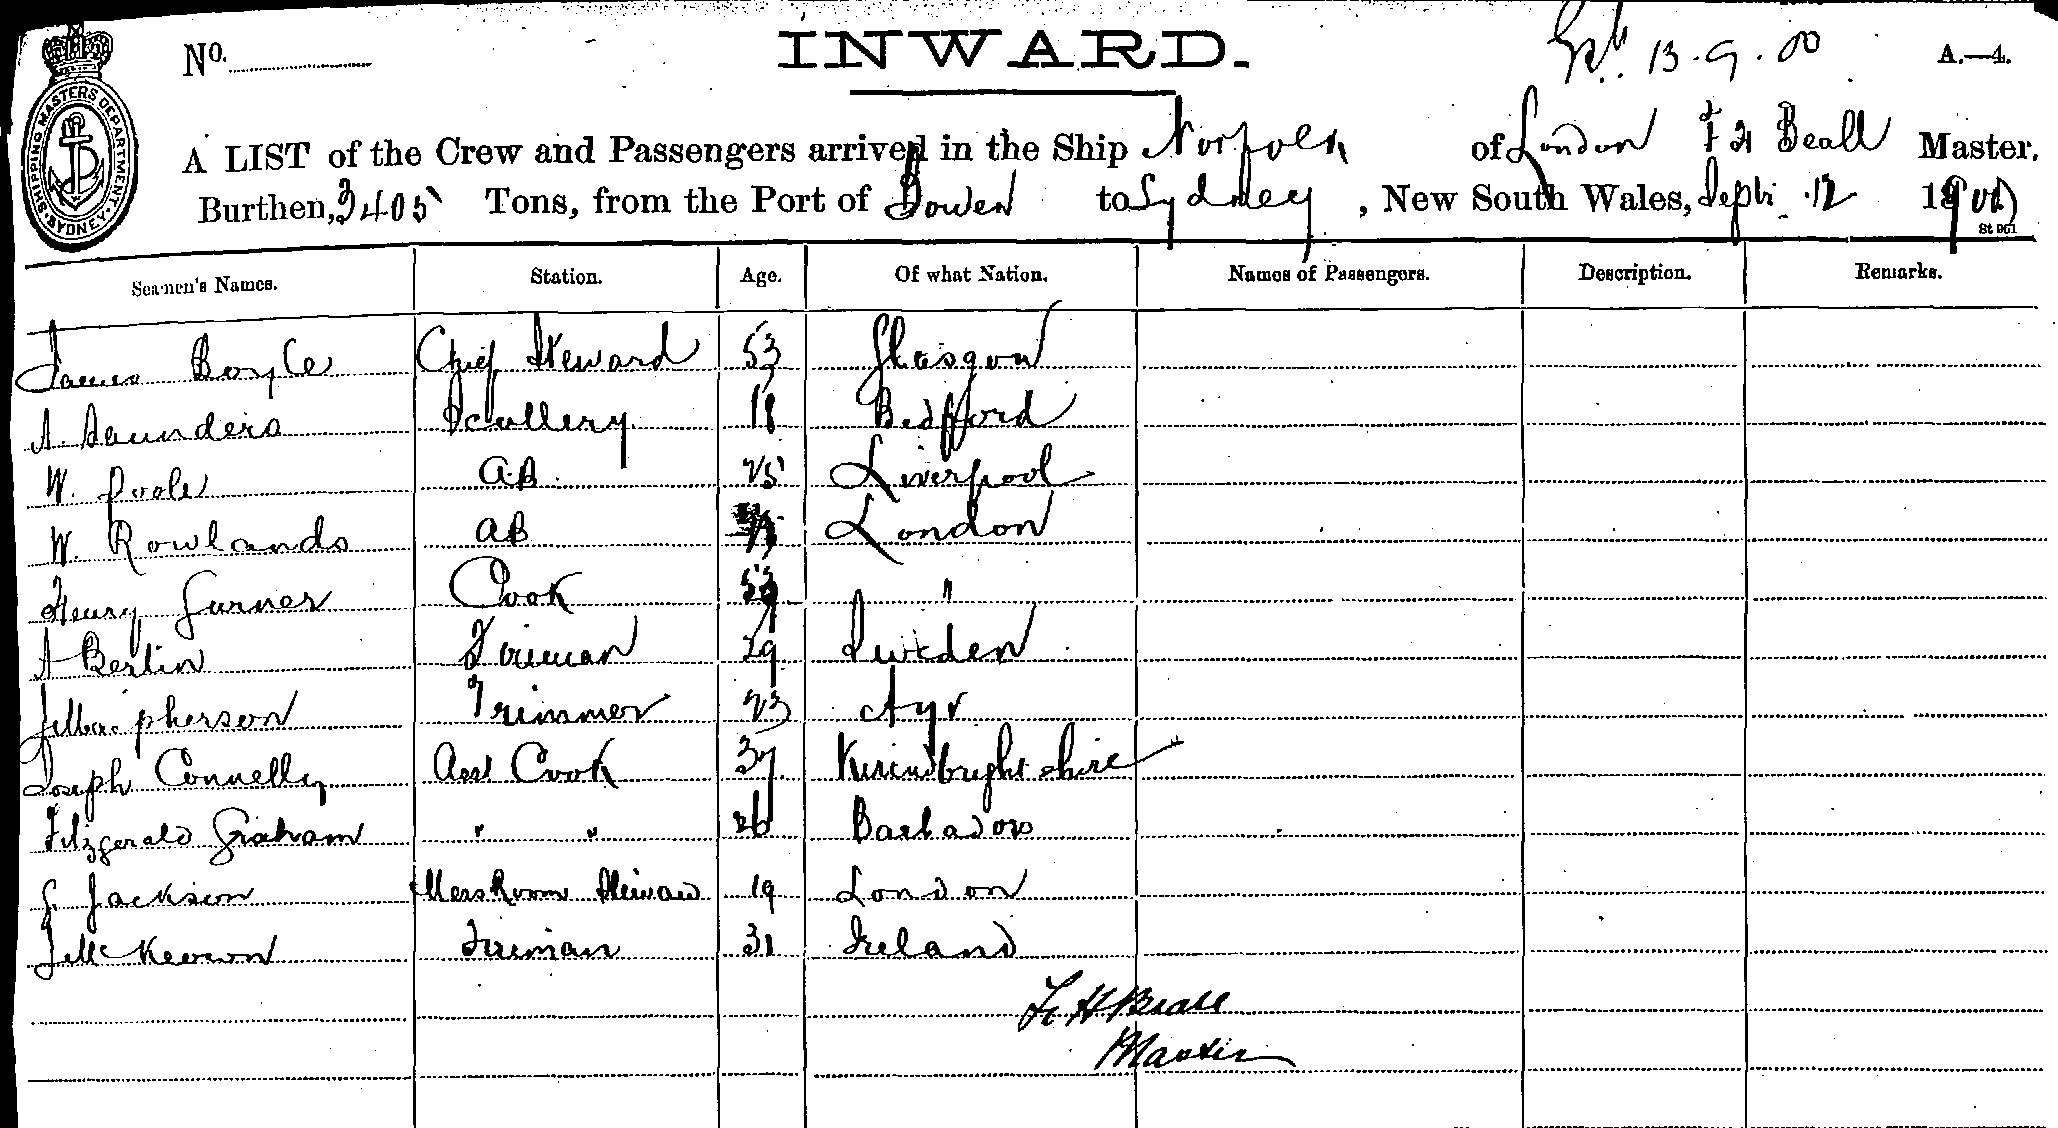 No. INWARD. 13.9.00 A.—4.
SHIPPING MASTERS DEPARTMENT. SYDNEY.
A LIST of the Crew and Passengers arrived in the Ship Norfolk of London F H Beall Master.
Burthen, 3405 Tons, from the Port of Bowen to Sydney, New South Wales, Sept. 12 1900
St 961
Seamen's Names. Station. Age. Of what Nation. Names of Passengers. Description. Remarks.
James Boyle Chief Steward 53 Glasgow
A. Saunders Scullery 18 Bedfford
W. Poole AB. 25 Liverpool
W. Rowlands AB London
Henry Turner Cook "
A Berlin Fireman 29 Sweden
J Macpherson Trimmer 23 Ayr
Joseph Connelly Asst Cook 37
Fitzgerald Graham " " 26 Barbados
G. Jackson Mess Room Steward 19 London
J McKeown Fireman 31 Ireland
F H Beall
Master